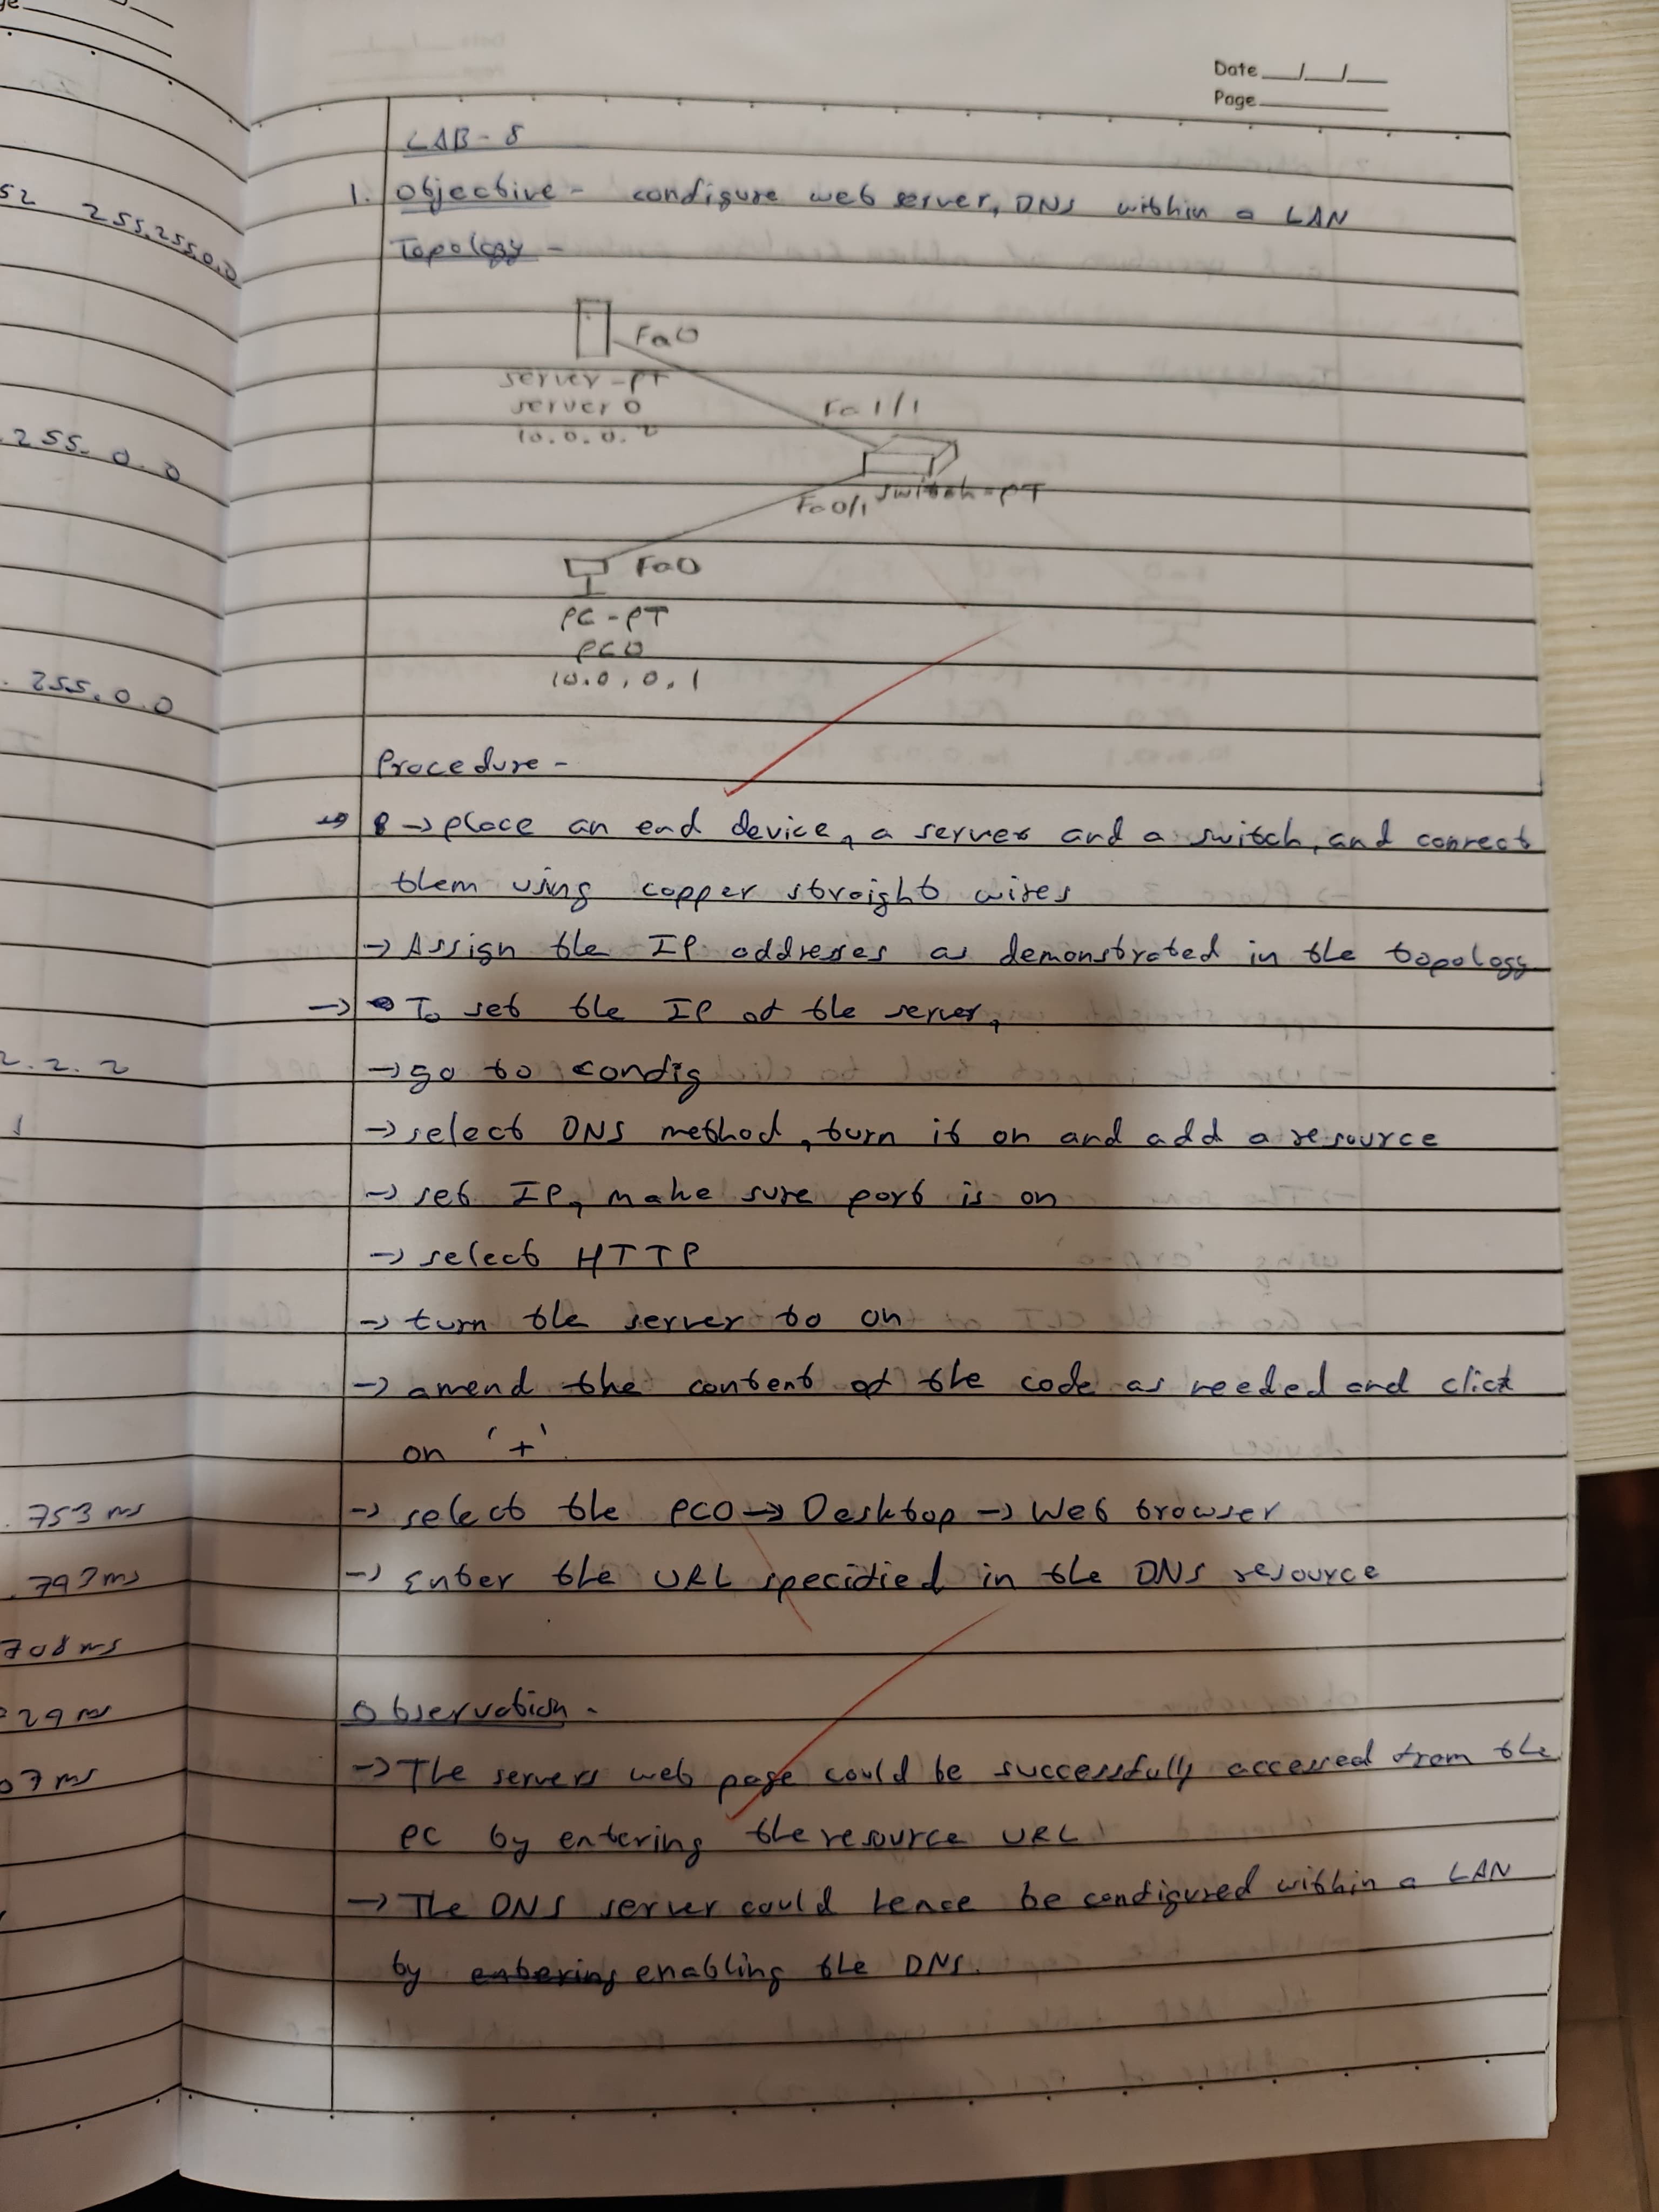 Date __/__/__
Page
52 255.255.0.0
.255.0.0
.255.0.0
2.2.2
.753 ms
.793ms
708 ms
29 ms
07 ms
LAB-8
1. Objective - configure web server, DNS within a LAN
Topology -
Fa0
server-PT
server 0
10.0.0.2
Fa 1/1
switch-PT
Fa0/1
Fa0
PC-PT
PC0
10.0.0.1
Procedure -
→ → place an end device, a server and a switch, and connect
them using copper straight wires
→ Assign the IP addresses as demonstrated in the topology
→ To set the IP of the server,
→ go to config
→ select DNS method, turn it on and add a resource
→ set IP, make sure port is on
→ select HTTP
→ turn the server to on
→ amend the content of the code as needed and click
on '+'.
→ select the PC0 → Desktop → Web browser
→ Enter the URL specified in the DNS resource
Observation -
→ The servers web page could be successfully accessed from the
PC by entering the resource URL
→ The DNS server could hence be configured within a LAN
by entering enabling the DNS.